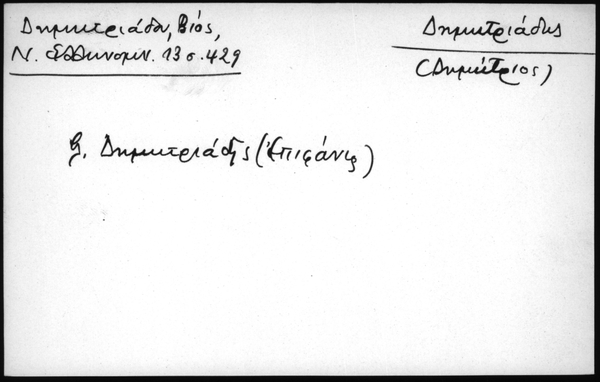 Δημητριάδου, Βιός,
Ν. Ἑλληνομν. 13 σ. 429
Δημητριάδης
(Δημήτριος)
β. Δημητριάδης (Ἐπιφάνης)